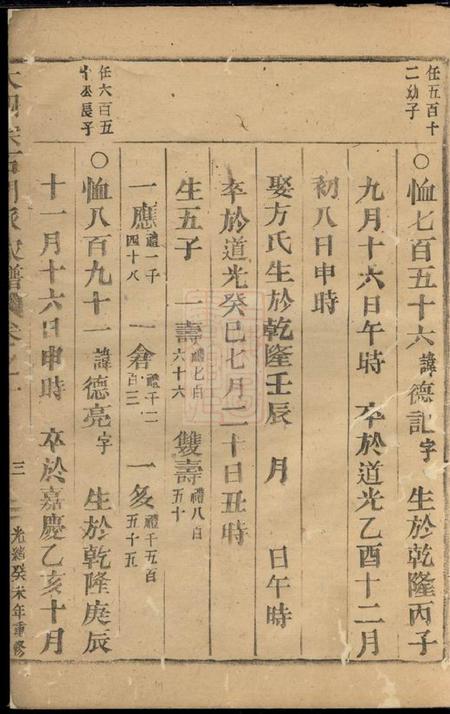 任五百十
二幼子
○恤七百五十六諱德記字 生於乾隆丙子
九月十六日午時 卒於道光乙酉十二月
初八日申時
娶方氏生於乾隆壬辰 月 日午時
卒於道光癸巳七月二十日丑時
生五子 一壽禮七百六十六 雙壽禮八百五十
一應禮一千四十八 一倉禮千二百三 一多禮千五百五十五
任六百五
十丞長子
○恤八百九十一諱德亮字 生於乾隆庚辰
十一月十六日申時 卒於嘉慶乙亥十月
三
光緒癸未年重修